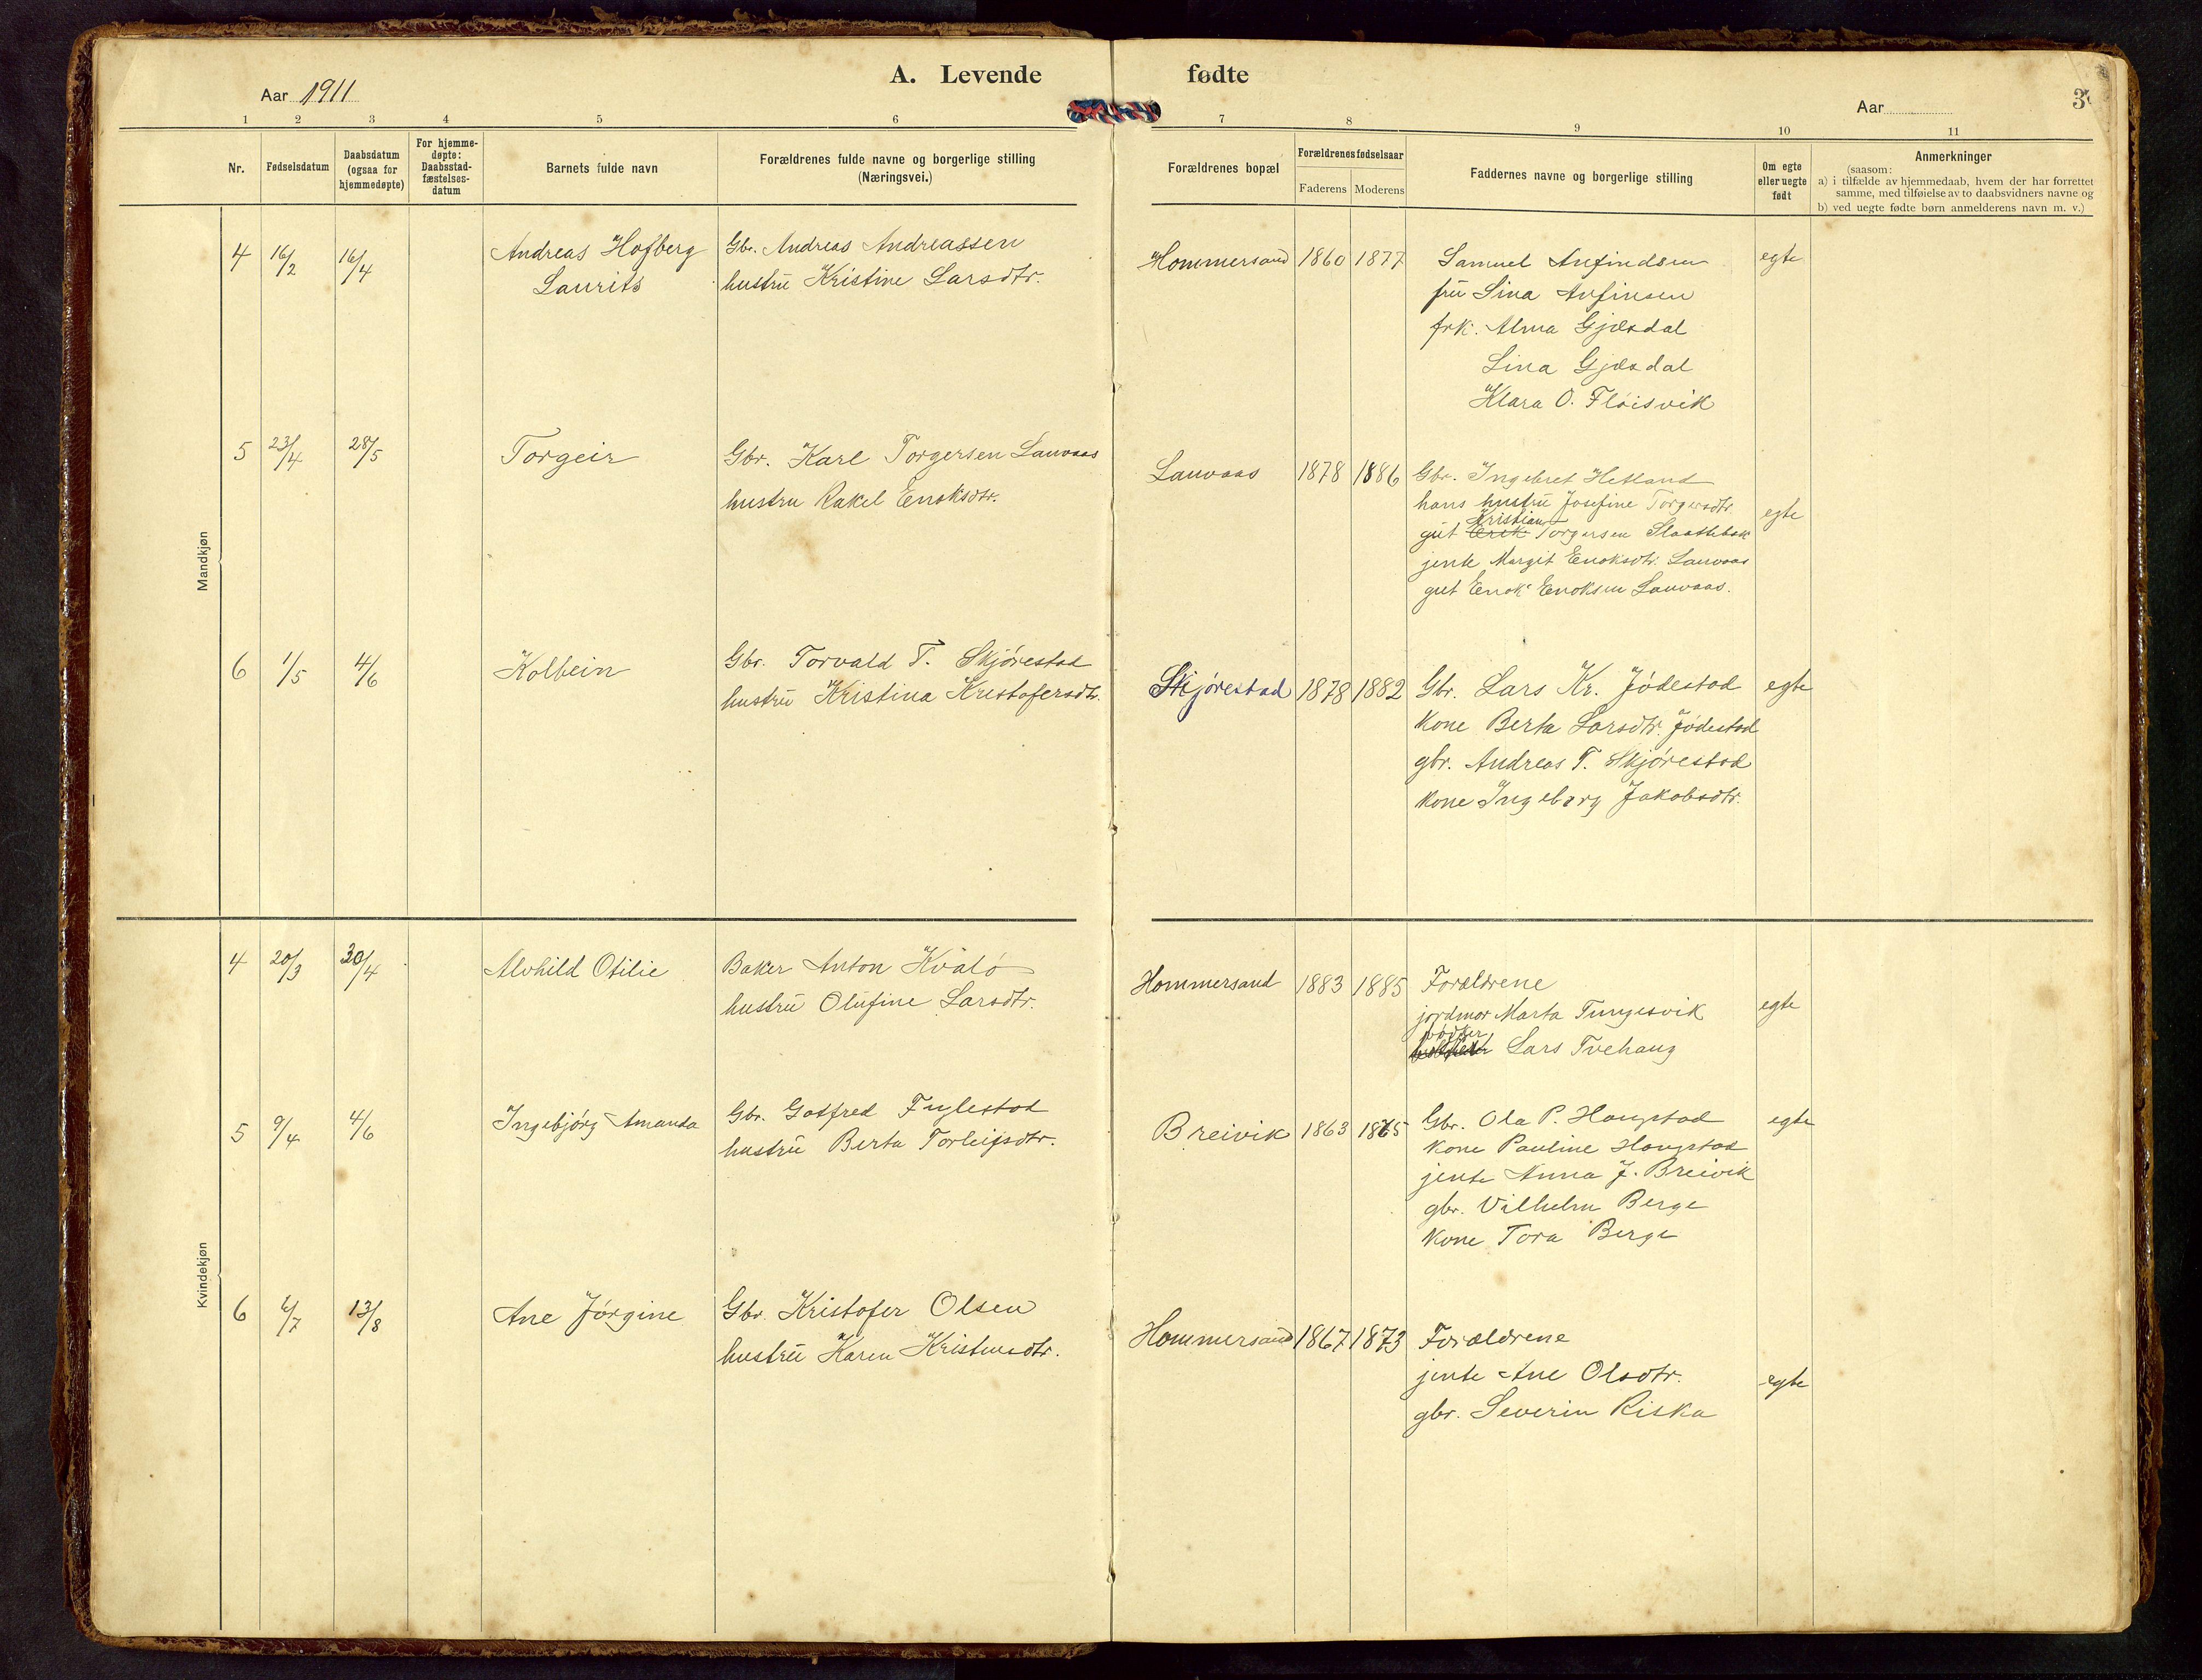 A. Levende fødte
Aar 1911
Aar
3
1 2 3 4 5 6 7 8 9 10 11
Nr.
Fødselsdatum
Daabsdatum
(ogsaa for
hjemmedøpte)
For hjemme-
døpte:
Daabsstad-
fæstelses-
datum
Barnets fulde navn
Forældrenes fulde navne og borgerlige stilling
(Næringsvei.)
Forældrenes bopæl
Forældrenes fødselsaar
Faderens Moderens
Faddernes navne og borgerlige stilling
Om egte
eller uegte
født
Anmerkninger
(saasom:
a) i tilfælde av hjemmedaab, hvem der har forrettet
samme, med tilføielse av to daabsvidners navne og
b) ved uegte fødte børn anmelderens navn m. v.)
Mandkjøn
4 16/2 16/4
Andreas Hofberg
Laurits
Gbr. Andreas Andreassen
hustru Kristine Larsdtr.
Hommersand 1860 1877
Samuel Anfindsen
fru Sina Anfinsen
frk. Alma Gjesdal
Lina Gjesdal
Klara O. Fløisvik
egte
5 23/4 28/5
Torgeir
Gbr. Karl Torgersen Lauvaas
hustru Rakel Enoksdtr.
Lauvaas 1878 1886
Gbr. Ingebret Hetland
hans hustru Josefine Torgersdtr.
Kristian
gut Erik Torgersen Slaattebak
jente Margit Enoksdtr. Lauvaas
gut Enok Enoksen Lauvaas.
egte
6 1/5 4/6
Kolbein
Gbr. Torvald T. Skjørestad
hustru Kristina Kristofersdtr.
Skjørestad 1878 1882
Gbr. Lars Kr. Jødestad
kone Berta Larsdtr. Jødestad
gbr. Andreas T. Skjørestad
kone Ingeborg Jakobsdtr.
egte
Kvindekjøn
4 20/3 30/4
Alvhild Otilie
Baker Anton Kvalø
hustru Olufine Larsdtr.
Hommersand 1883 1885
Forældrene
jordmor Marta Tungesvik
bødker
Lars Tvehaug
egte
5 9/4 4/6
Ingebjørg Amanda
Gbr. Gotfred Fuglestad
hustru Berta Torleifsdtr.
Breivik 1863 1865
Gbr. Ola P. Haugstad
kone Pauline Haugstad
jente Anna J. Breivik
gbr. Vilhelm Berge
kone Tora Berge
egte
6 /7 13/8
Ane Jørgine
Gbr. Kristofer Olsen
hustru Karen Kristensdtr.
Hommersand 1867 1873
Forældrene
jente Ane Olsdtr.
gbr. Severin Riska
egte